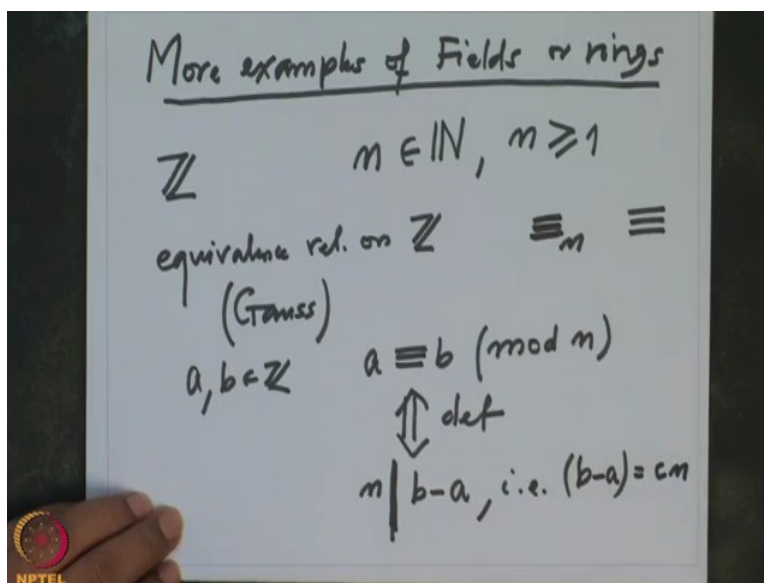 More examples of Fields or rings
ℤ n ∈ ℕ, n ⩾ 1
equivalence rel. on ℤ ≡n ≡
(Gauss)
a, b ∈ ℤ a ≡ b (mod n)
⇕ def
n | b-a, i.e. (b-a) = cn
NPTEL